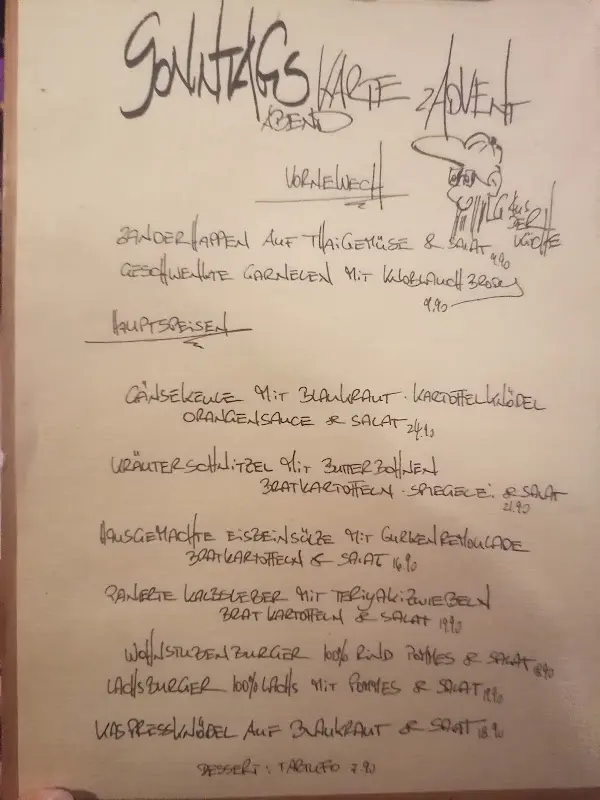 SONNTAGS KARTE 2 ADVENT
ABEND
VORNEWECH
GRUß AUS DER KÜCHE
ZANDERHAPPEN AUF THAIGEMÜSE & SALAT 9.90
GESCHWENKTE GARNELEN MIT KNOBLAUCHBROT
9.90
HAUPTSPEISEN
GÄNSEKEULE MIT BLAUKRAUT · KARTOFFELKNÖDEL
ORANGENSAUCE & SALAT 24.90
KRÄUTERSCHNITZEL MIT BUTTERBOHNEN
BRATKARTOFFELN · SPIEGELEI & SALAT
21.90
HAUSGEMACHTE EISBEINSÜLZE MIT GURKENREMOULADE
BRATKARTOFFELN & SALAT 16.90
PANIERTE KALBSLEBER MIT TERIYAKIZWIEBELN
BRATKARTOFFELN & SALAT 19.90
WOHNSTUBENBURGER 100% RIND POMMES & SALAT 18.90
LACHSBURGER 100% LACHS MIT POMMES & SALAT 19.90
KASPRESSKNÖDEL AUF BLAUKRAUT & SALAT 18.90
DESSERT: TARTUFO 7.90